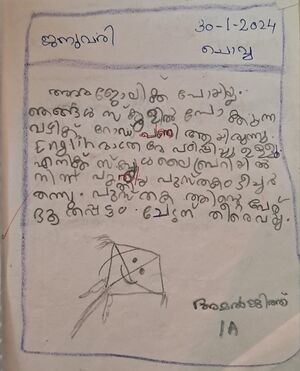 ജനുവരി
30-1-2024
ചൊവ്വ
അമ്മ ജോലിക്ക് പോയില്ല.
ഞങ്ങൾ സ്കൂളിൽ പോകുന്ന
വഴിക്ക് റോഡ് പണി ആയിരുന്നു.
English മാത്രമേ പഠിപ്പിച്ചു ഉള്ളൂ
എനിക്ക് സ്കൂൾ ലൈബ്രറിയിൽ
നിന്ന് പുസ്തകം ടീച്ചർ
തന്നു. പുസ്തക ത്തിന്റെ പേര്
പട്ടം.
അമൽജിത്ത്
1A